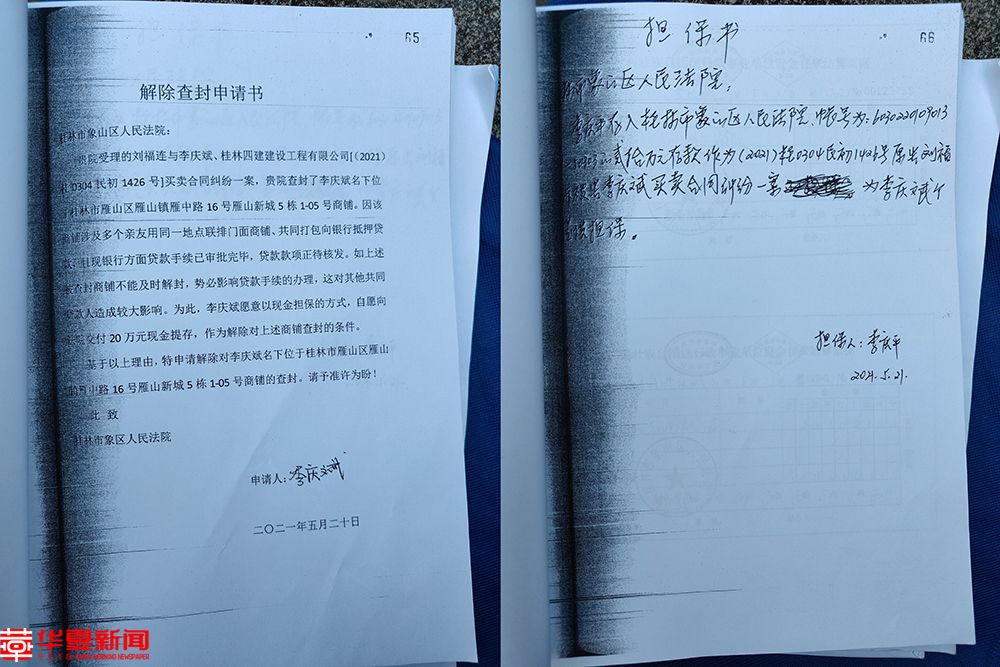 65
解除查封申请书
桂林市象山区人民法院：
贵院受理的刘福连与李庆斌、桂林四建建设工程有限公司[（2021）
0304 民初 1426 号]买卖合同纠纷一案，贵院查封了李庆斌名下位
桂林市雁山区雁山镇雁中路 16 号雁山新城 5 栋 1-05 号商铺。因该
商铺涉及多个亲友用同一地点联排门面商铺、共同打包向银行抵押贷
款，且现银行方面贷款手续已审批完毕，贷款款项正待核发。如上述
查封商铺不能及时解封，势必影响贷款手续的办理，这对其他共同
贷款人造成较大影响。为此，李庆斌愿意以现金担保的方式，自愿向
交付 20 万元现金提存，作为解除对上述商铺查封的条件。
基于以上理由，特申请解除对李庆斌名下位于桂林市雁山区雁山
雁中路 16 号雁山新城 5 栋 1-05 号商铺的查封。请予准许为盼！
此 致
桂林市象区人民法院
申请人：李庆斌
二〇二一年五月二十日
66
担保书
市象山区人民法院：
李庆平存入桂林市象山区人民法院，帐号为：6030220109013
贰拾万元存款作为（2021）桂0304民初1426号原告刘福
李庆斌买卖合同纠纷一案 为李庆斌
担保。
担保人：李庆平
2021.5.21.
华夏新闻
MORNING NEWSPAPER